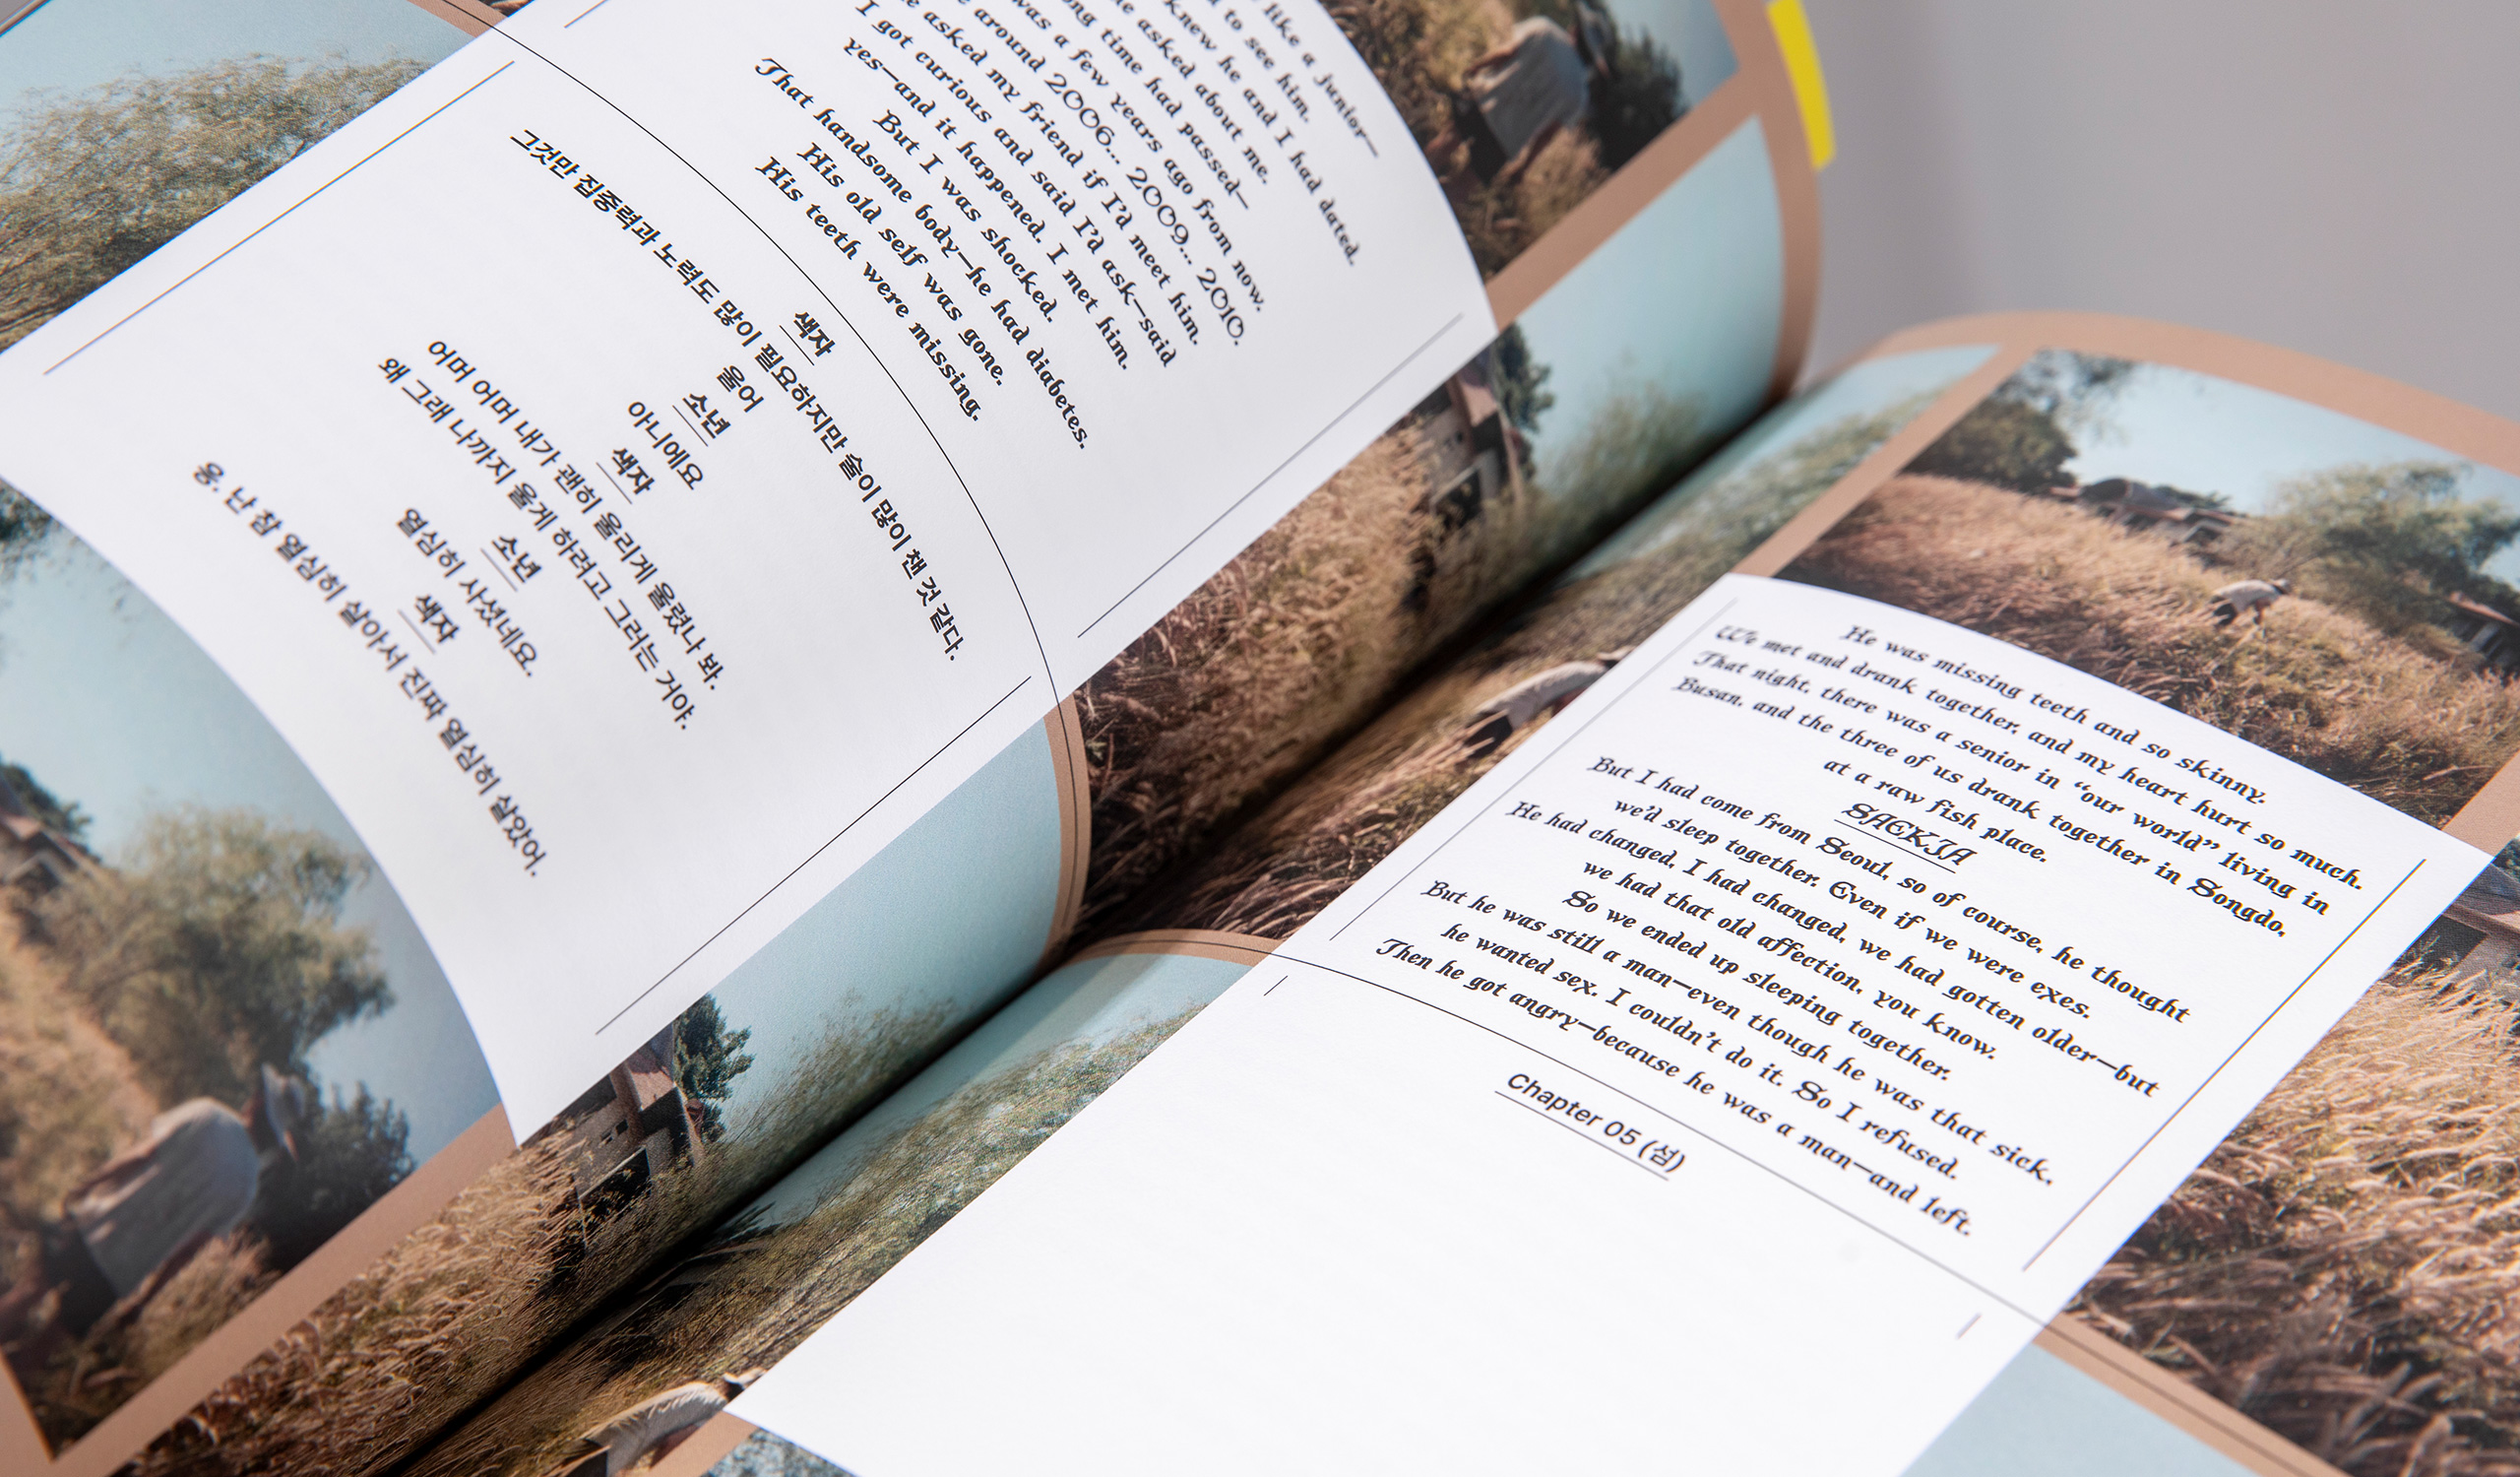 like a junior—
to see him.
knew he and I had dated.
asked about me.
time had passed—
was a few years ago from now.
around 2006... 2009... 2010.
asked my friend if I'd meet him.
I got curious and said I'd ask—said
yes—and it happened. I met him.
But I was shocked.
That handsome body—he had diabetes.
His old self was gone.
His teeth were missing.
그것만 집중력과 노력도 많이 필요하지만 술이 많이 챈 것 같다.
색자
울어
소년
아니에요
색자
어머 어머 내가 괜히 울리게 울렸나 봐.
왜 그래 나까지 울게 하려고 그러는 거야.
소년
열심히 사셨네요.
색자
응. 난 참 열심히 살아서 진짜 열심히 살았어.
He was missing teeth and so skinny.
We met and drank together, and my heart hurt so much.
That night, there was a senior in “our world” living in
Busan, and the three of us drank together in Songdo,
at a raw fish place.
SAEKJA
But I had come from Seoul, so of course, he thought
we'd sleep together. Even if we were exes.
He had changed, I had changed, we had gotten older—but
we had that old affection, you know.
So we ended up sleeping together.
But he was still a man—even though he was that sick,
he wanted sex. I couldn't do it. So I refused.
Then he got angry—because he was a man—and left.
Chapter 05 (섬)